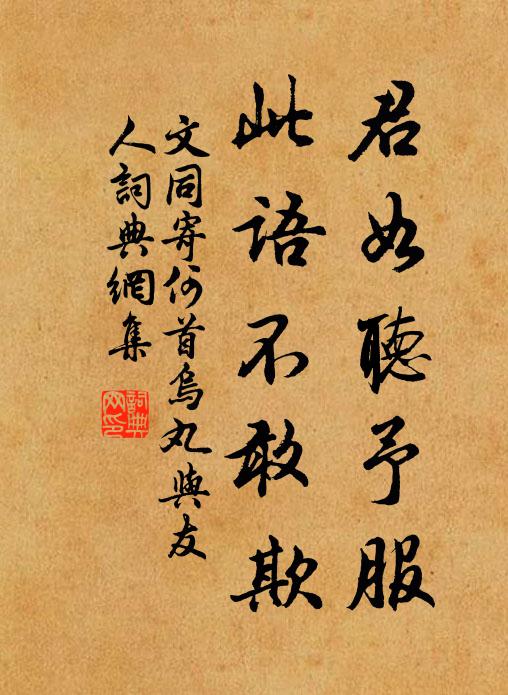 君如聽予服
此語不敢欺
文同寄何首烏丸與友
人詞典網集
詞典
网印